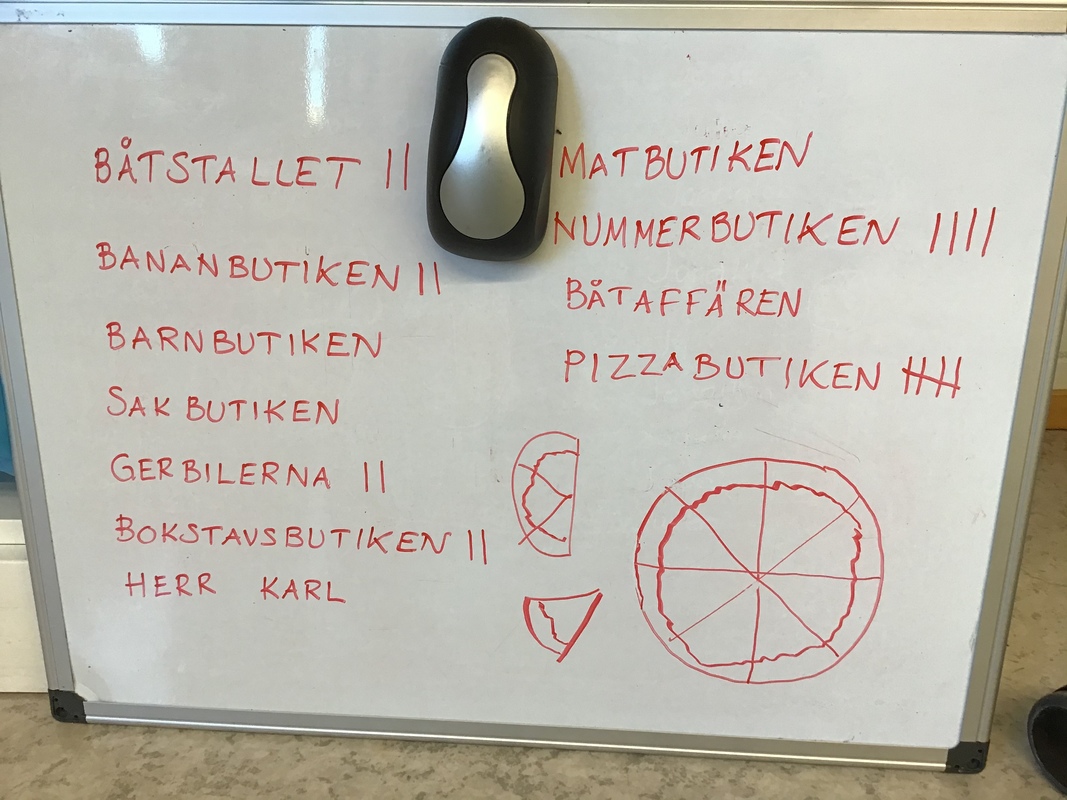 BÅTSTALLET ||
BANANBUTIKEN ||
BARNBUTIKEN
SAKBUTIKEN
GERBILERNA ||
BOKSTAVSBUTIKEN ||
HERR KARL
MATBUTIKEN
NUMMERBUTIKEN ||||
BÅTAFFÄREN
PIZZABUTIKEN 卌